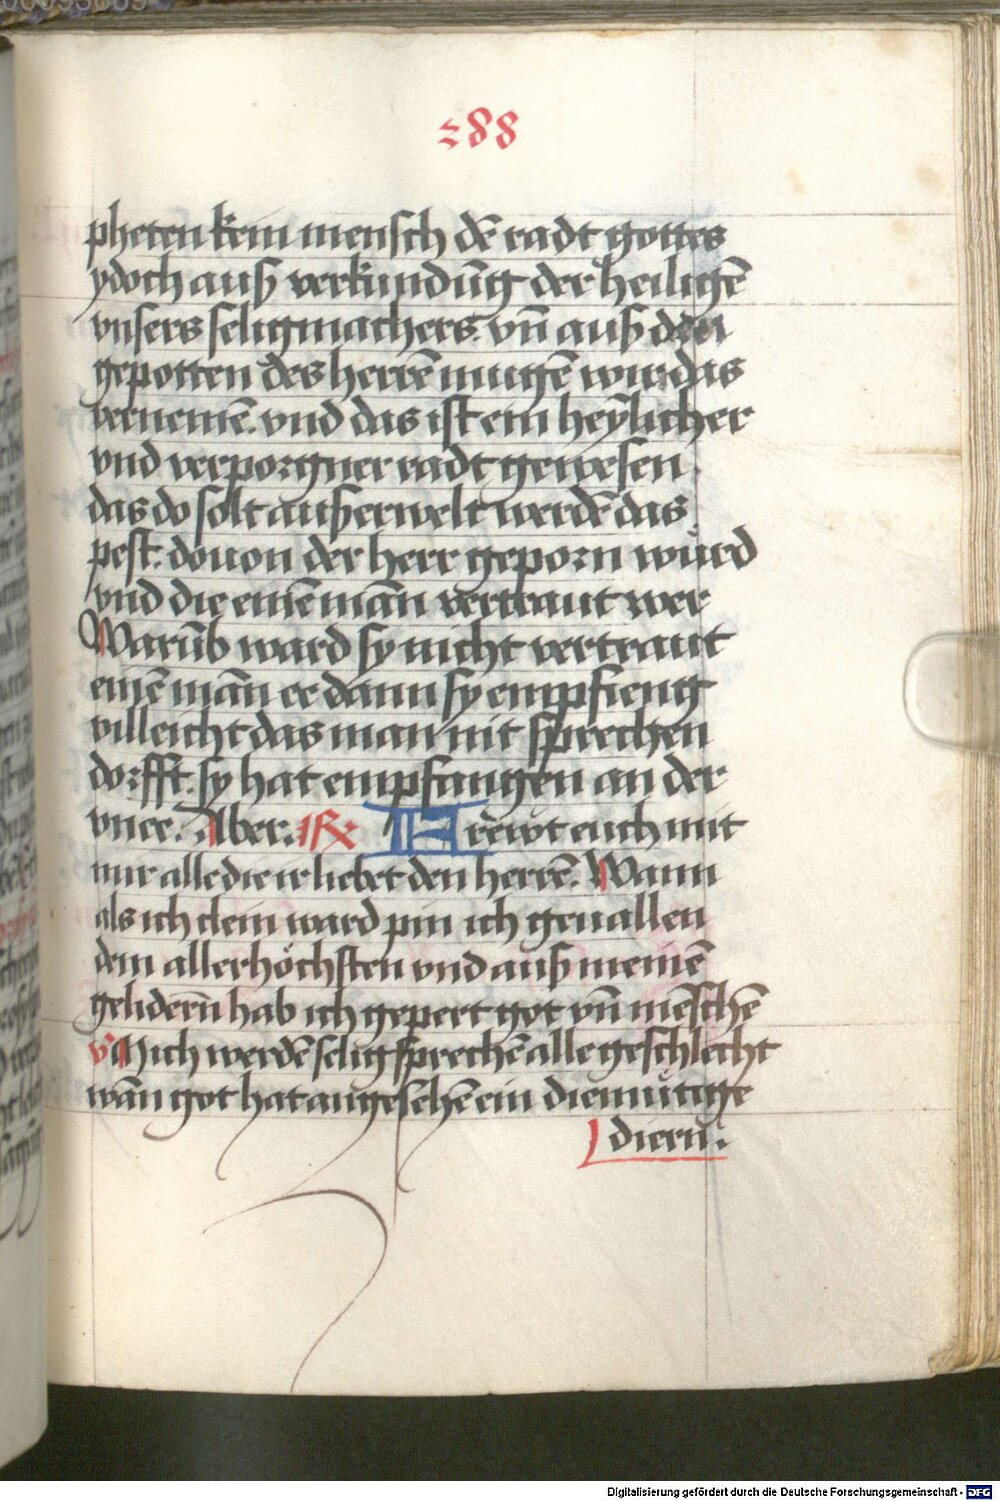 288
pheten kein mensch dē radt gottes
ydoch auß verkundūg der heiligē
vnsers seligmachers. vn̄ auß den
gepotten des herrē mugē wir das
vernemē. vnd das ist ein heylicher
vnd verporgner radt gewesen
das do solt außerwelt werdē das
pest. douon der herr geporn würd
vnd die einē mān vertraut wer
Warūb ward sy nicht vertraut
einē mān ee dann sy empfieng
villeicht das man nit sprechen
dorfft. sy hat empfangen an der
vnee. Aber. R Frewt euch mit
mir alle die ir liebet den herrē. Wann
als ich clein ward pin ich geuallen
dem allerhöchsten vnd auß meinē
gelidern̄ hab ich gepert got vn̄ mēschē
v Mich werdē selig sprechē alle geschlecht
wān got hat angesehē ein diemütige
diern.
Digitalisierung gefördert durch die Deutsche Forschungsgemeinschaft - DFG